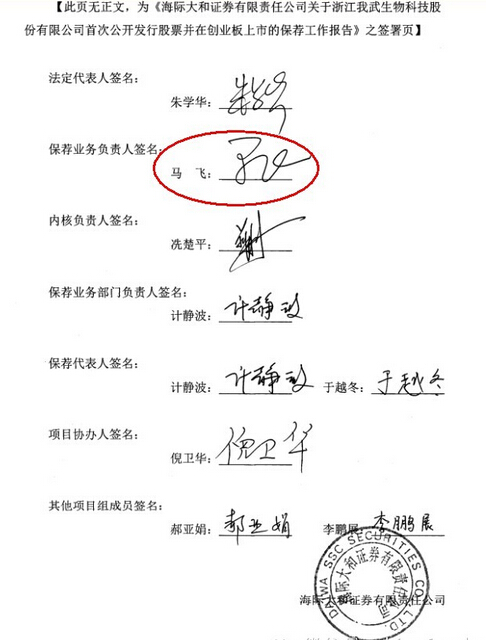 【此页无正文，为《海际大和证券有限责任公司关于浙江我武生物科技股
份有限公司首次公开发行股票并在创业板上市的保荐工作报告》之签署页】
法定代表人签名：
朱学华：
保荐业务负责人签名：
马 飞：
内核负责人签名：
冼楚平：
保荐业务部门负责人签名：
计静波： 计静波
保荐代表人签名：
计静波： 计静波 于越冬： 于越冬
项目协办人签名：
倪卫华： 倪卫华
其他项目组成员签名：
郝亚娟： 郝亚娟 李鹏展： 李鹏展
DAIWA SSC SECURITIES CO., LTD.
海际大和证券有限责任公司
海际大和证券有限责任公司